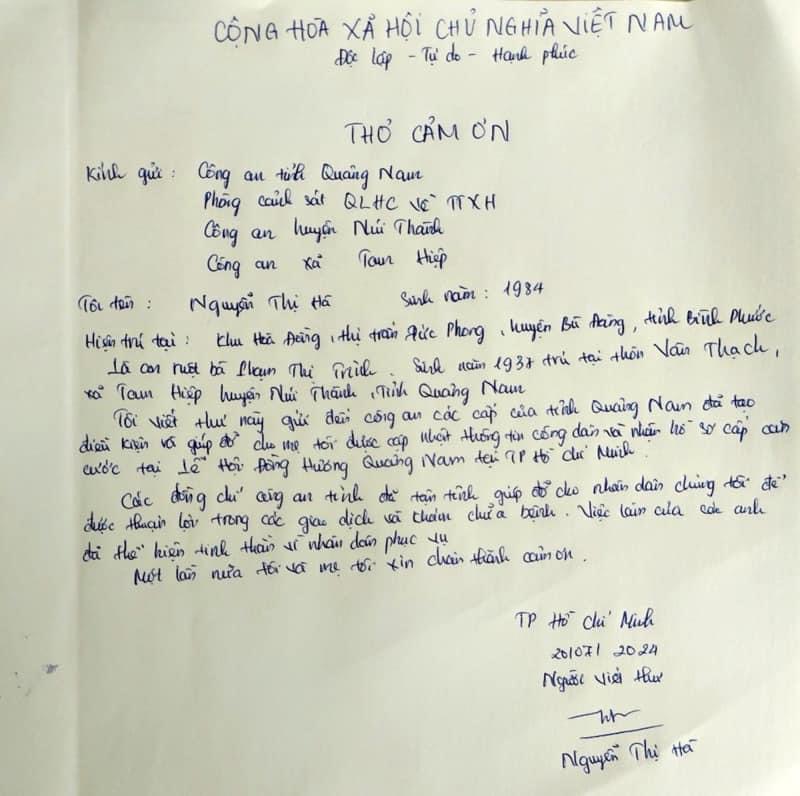 CỘNG HÒA XÃ HỘI CHỦ NGHĨA VIỆT NAM
Độc lập - Tự do - Hạnh phúc
THƠ CẢM ƠN
Kính gửi : Công an tỉnh Quảng Nam
Phòng cảnh sát QLHC về TTXH
Công an huyện Núi Thành
Công an xã Tam Hiệp
Tôi tên : Nguyễn Thị Hà Sinh năm : 1984
Hiện trú tại : Khu Hoà Đồng, thị trấn Đức Phong, huyện Bù Đăng, tỉnh Bình Phước
Là con ruột bà Phạm Thị Trinh. Sinh năm 1937 trú tại thôn Vân Thạch,
xã Tam Hiệp huyện Núi Thành, Tỉnh Quảng Nam
Tôi viết thư này gửi đến công an các cấp của tỉnh Quảng Nam đã tạo
điều kiện và giúp đỡ cho mẹ tôi được cập nhật thông tin công dân và nhận hồ sơ cấp căn
cước tại Lễ Hội Đồng Hương Quảng Nam tại TP Hồ Chí Minh.
Các đồng chí công an tỉnh đã tận tình giúp đỡ cho nhân dân chúng tôi để
được thuận lợi trong các giao dịch và khám chữa bệnh. Việc làm của các anh
đã thể hiện tinh thần vì nhân dân phục vụ
Một lần nữa tôi và mẹ tôi xin chân thành cảm ơn.
TP Hồ Chí Minh
20/07/2024
Người viết thư
Nguyễn Thị Hà